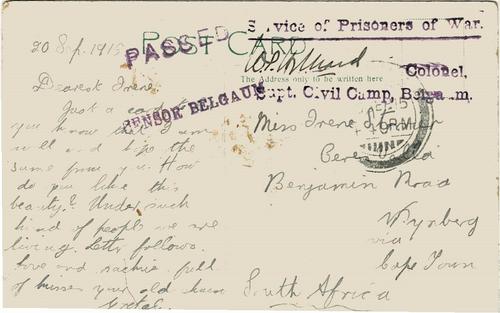 Service of Prisoners of War.
POST CARD
PASSED
20 Sep. 1915
The Address only to be written here
Colonel,
Supt. Civil Camp, Belgaum.
CENSOR BELGAUM
Dearest Irene
Just a card
you know that I am
well and hope the
same from you. How
do you like this
beauty? Under such
kind of people we are
living. Letter follows.
Love and full
of kisses your old
Miss Irene
Benjamin Road
Wynberg
via
Cape Town
South Africa